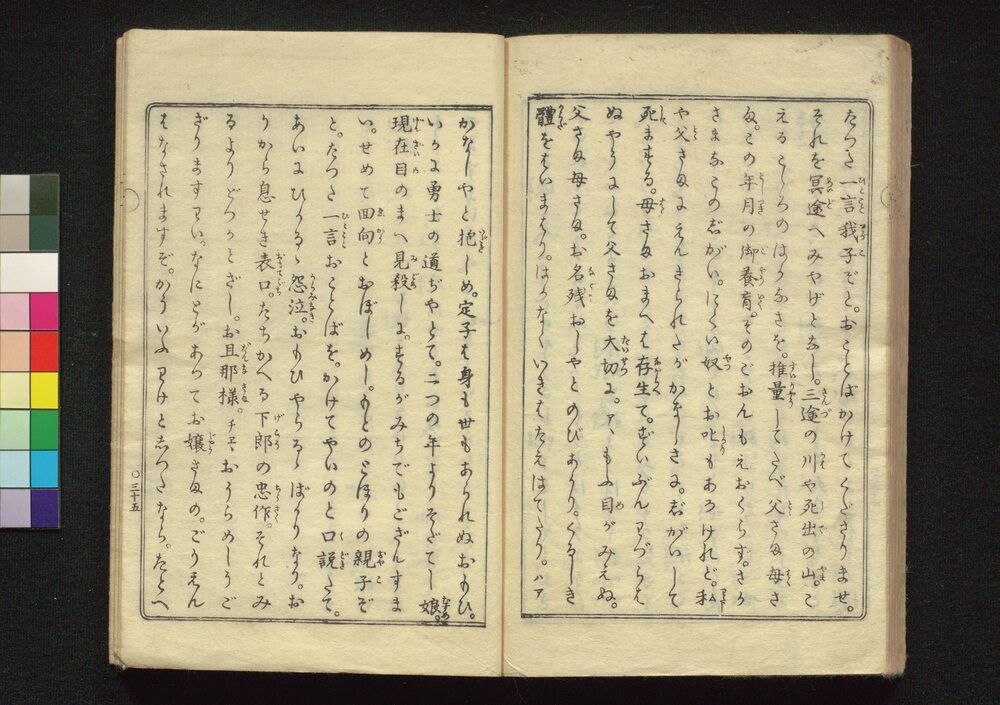 たつた一言我子ぞと。おことばかけてくださりませ。
それを冥途へみやげとなし。三途の川や死出の山。こ
えるこゝろのはかなさを。推量してたべ父さま母さ
ま。この年月の御養育。そのごおんもえおくらず。さか
さまなこのじがい。にくい奴とお叱もあろけれど。私
や父さまにえんきられたがかなしさに。じがいして
死まする。母さまおまへは存生て。ずいぶんわづらは
ぬやうにして父さまを大切に。アヽもふ目がみえぬ。
父さま母さま。お名残おしやとのびあがり。くるしき
體をはいまはり。はかなくいきはたえはてたり。ハア
かなしやと抱しめ。定子は身も世もあられぬおもひ。
いかに勇士の道ぢやとて。二つの年よりそだてし娘。
現在目のまへ見殺しに。するがみちでもござんすま
い。せめて回向とおぼしめし。もとのとほりの親子ぞ
と。たつた一言おことばを。かけてやいのと口説たて。
あいにひかるゝ怨泣。おもひやらるゝばかりなり。お
りから息せき表口。たちかへる下郎の忠作。それとみ
るよりどつかとざし。お且那様。チヱヽおうらめしうご
ざりますわい。なにとがあつてお嬢さまの。ごうえん
はなされますぞ。かういふわけとしつたなら。たとへ
〇三十五